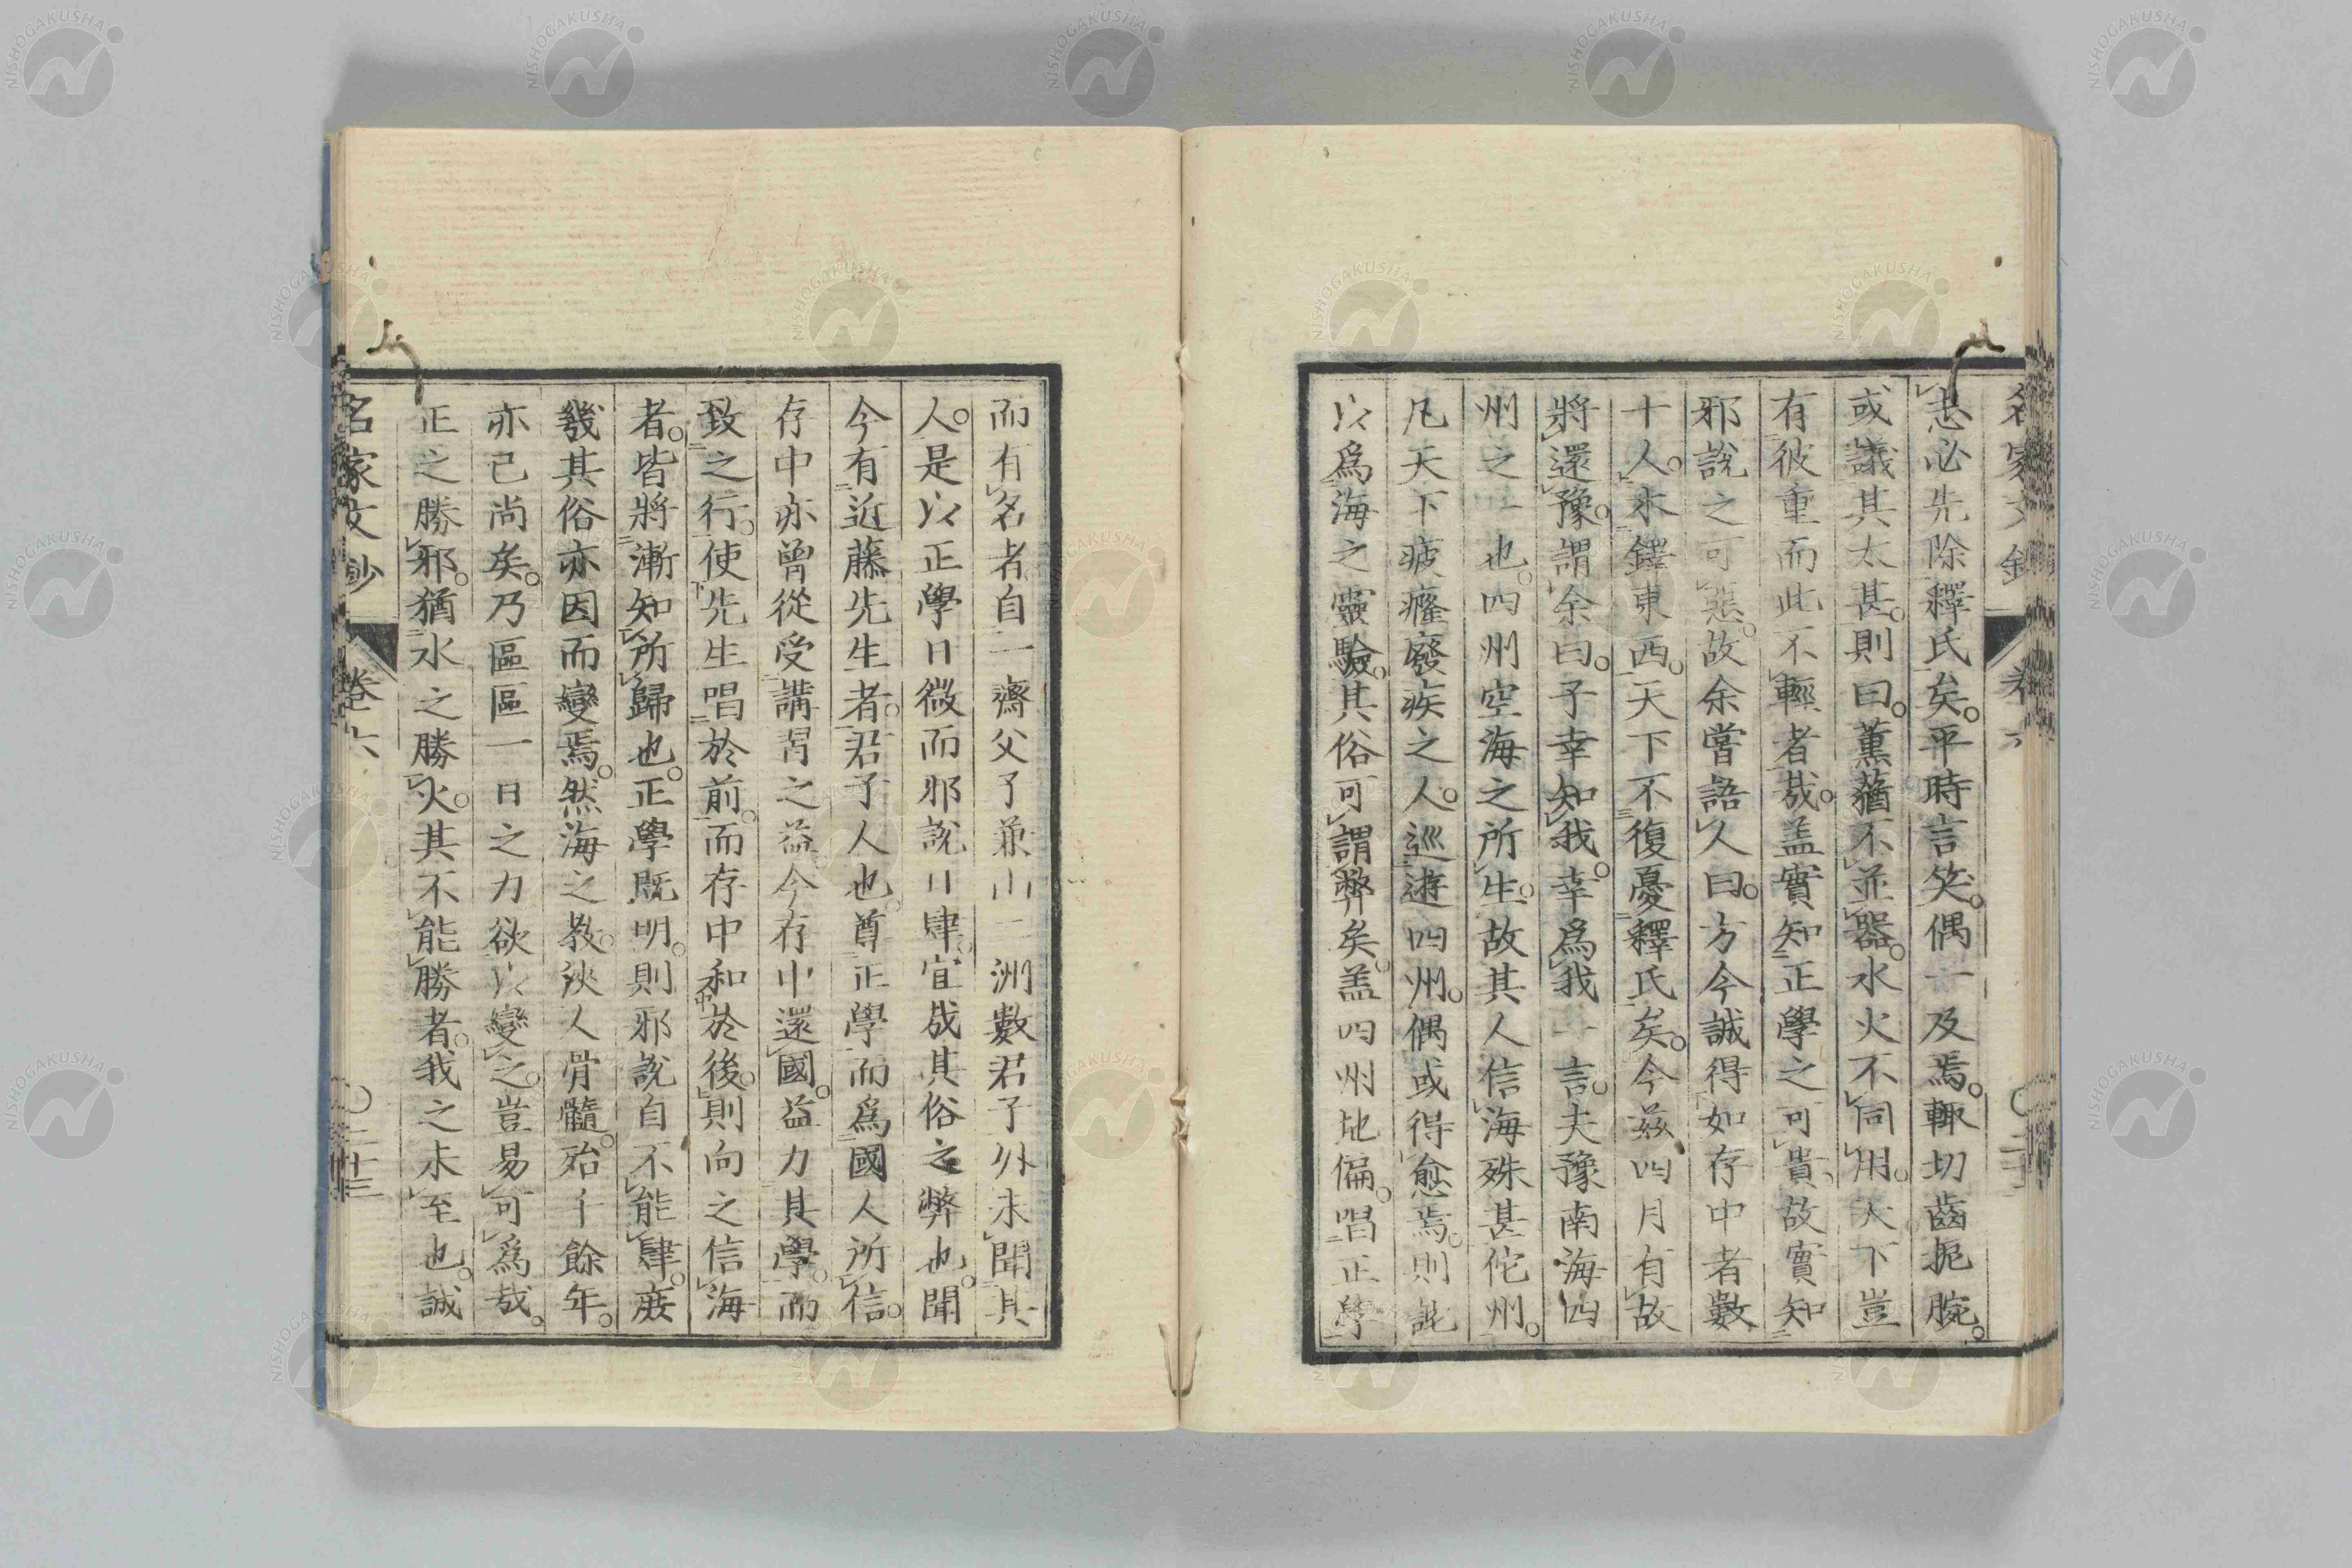 名家文鈔
卷六
志必先除釋氏矣。平時言笑。偶一及焉。輙切齒扼腕。
或議其太甚。則曰。薰蕕不並器。水火不同用。天下豈
有彼重而此不輕者哉。盖實知正學之可貴。故實知
邪說之可惡。故余嘗語人曰。方今誠得如存中者數
十人。木鐸東西。天下不復憂釋氏矣。今茲四月有故
將還豫。謂余曰。子幸知我。幸爲我一言。夫豫南海四
州之一也。四州空海之所生。故其人信海殊甚佗州。
凡天下疲癃廢疾之人。巡遊四州。偶或得愈焉。則訛
以爲海之靈驗。其俗可謂弊矣。盖四州地偏。唱正學
而有名者自一齋父子兼山二洲數君子外未聞其
人。是以正學日微而邪說日肆。宜成其俗之弊也。聞
今有近藤先生者。君子人也。尊正學而爲國人所信。
存中亦曾從受講習之益今存中還國。益力其學。而
致之行。使先生唱於前。而存中和於後。則向之信海
者。皆將漸知所歸也。正學既明。則邪說自不能肆。庶
幾其俗亦因而變焉。然海之教。浹人骨髓。殆千餘年。
亦已尚矣。乃區區一日之力欲以變之。豈易可爲哉。
正之勝邪。猶水之勝火。其不能勝者。我之未至也。誠
名家文鈔
卷六
二十三